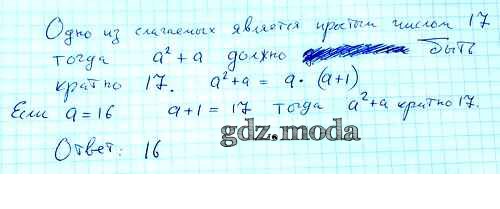 Одно из слагаемых является простым числом 17
тогда a² + a должно быть
кратно 17. a² + a = a · (a+1)
Если a = 16 a+1 = 17 тогда a² + a кратно 17.
gdz.moda
Ответ: 16